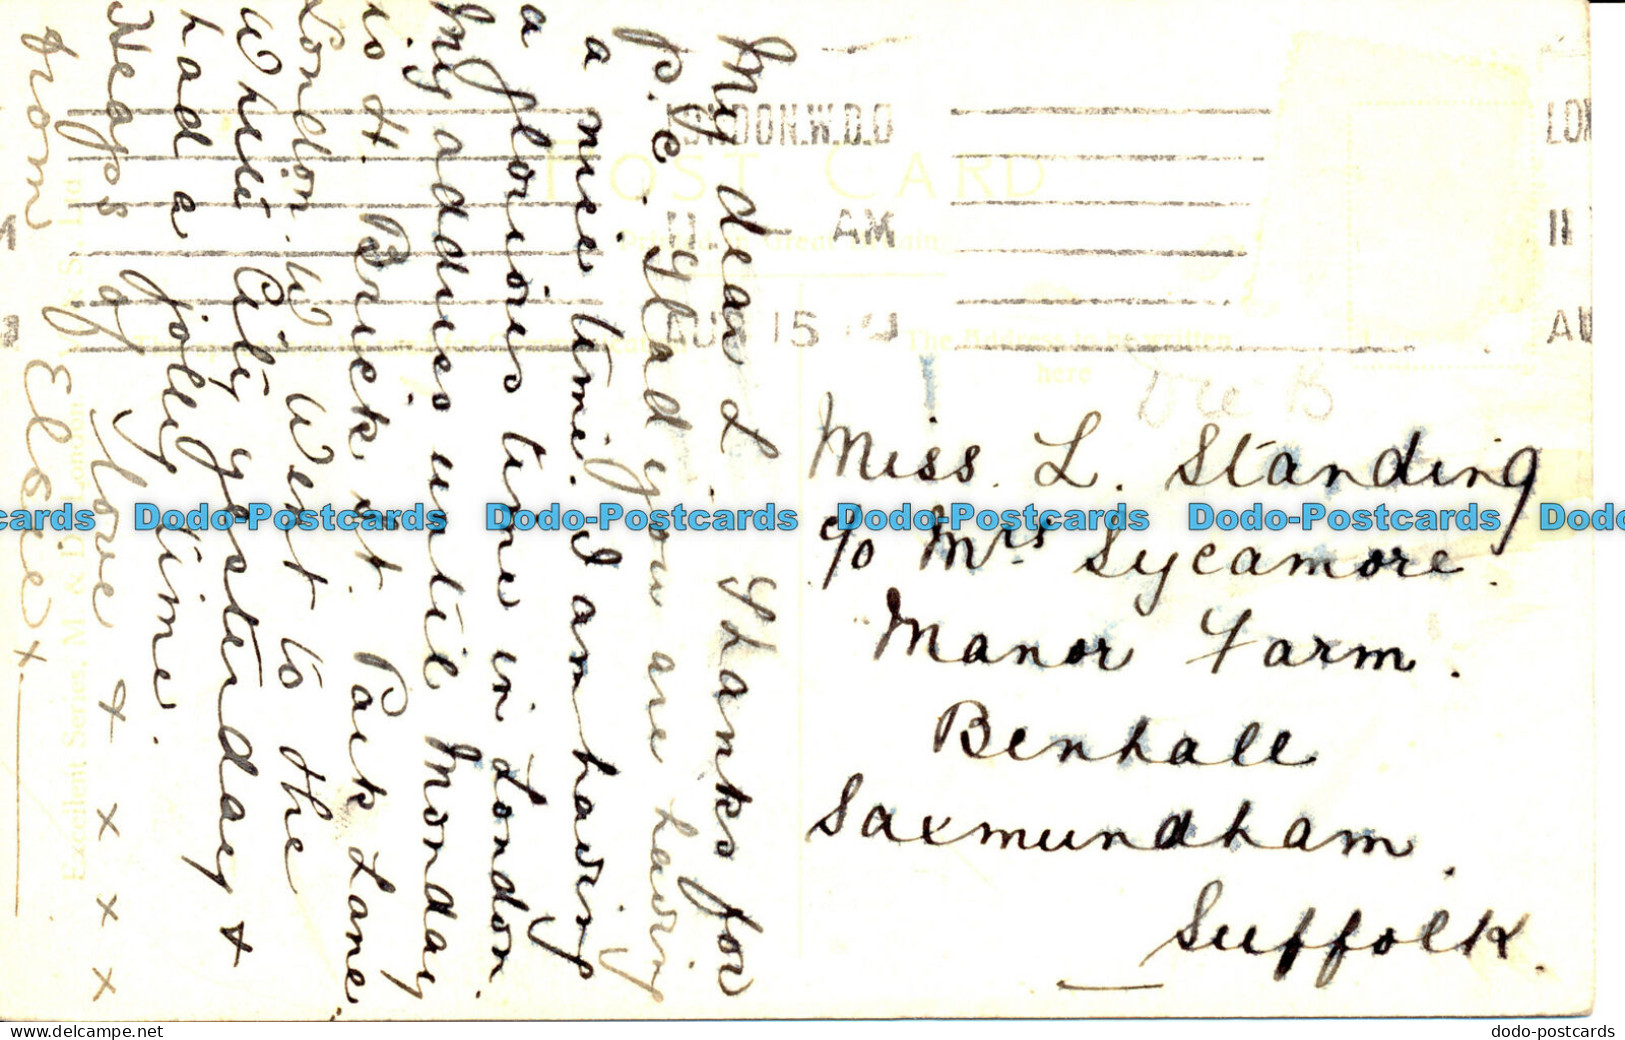 My dear L. Thanks for
p.c. Glad you are having
a nice time. I am having
a glorious time in London.
My address until Monday
is H. Brick st. Park Lane
London. W. Went to the
White City yesterday +
had a jolly time.
Heaps of love + x x x
from Elsie x
POST CARD
Printed in Great Britain
The Address to be written
here
Excellent Series, M. & D., London.
LONDON.W.D.O
11 - AM
AUG 15
LON
11
AU
Miss. L. Standing
c/o Mrs Sycamore.
Manor Farm.
Benhall
Saxmundham.
Suffolk.
Dodo-Postcards Dodo-Postcards Dodo-Postcards Dodo-Postcards
https://www.delcampe.net
dodo-postcards